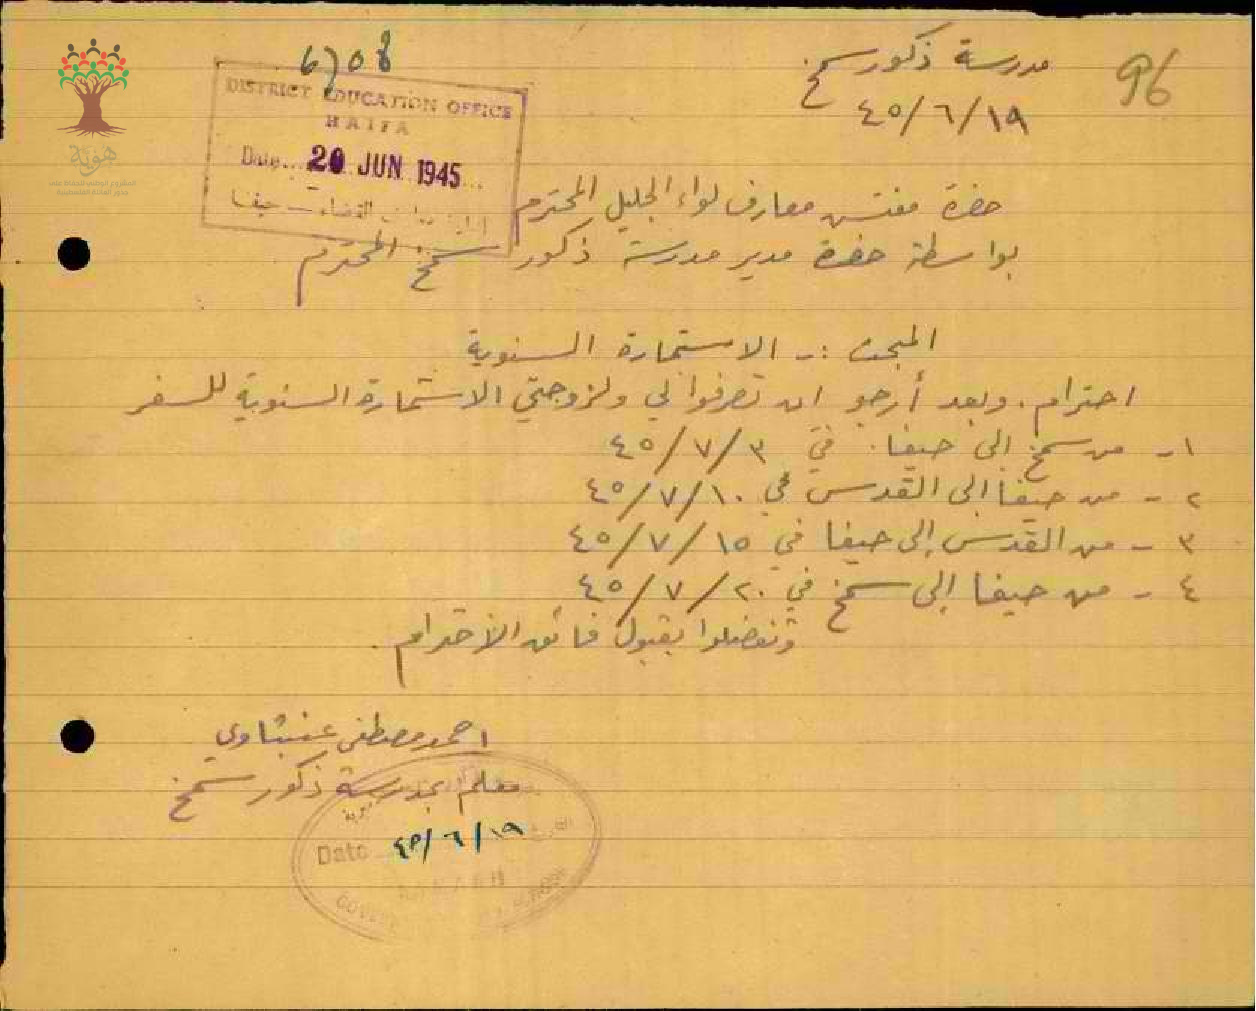 96
مدرسة ذكور سمخ
٤٥/٦/١٩
6708
DISTRICT EDUCATION OFFICE
HAIFA
Date... 20 JUN 1945
حضرة مفتش معارف لواء الجليل المحترم
بواسطة حضرة مدير مدرسة ذكور سمخ المحترم
المبحث :- الاستمارة السنوية
احترام. وبعد أرجو ان تصرفوا لي ولزوجتي الاستمارة السنوية للسفر
١- من سمخ إلى حيفا. في ٤٥/٧/٣
٢- من حيفا إلى القدس في ٤٥/٧/١٠
٣- من القدس إلى حيفا في ٤٥/٧/١٥
٤- من حيفا إلى سمخ في ٤٥/٧/٢٠
وتفضلوا بقبول فائق الاحترام.
احمد مصطفى عنبتاوي
معلم بمدرسة ذكور سمخ
Date ٤٥/٦/١٩
هوية